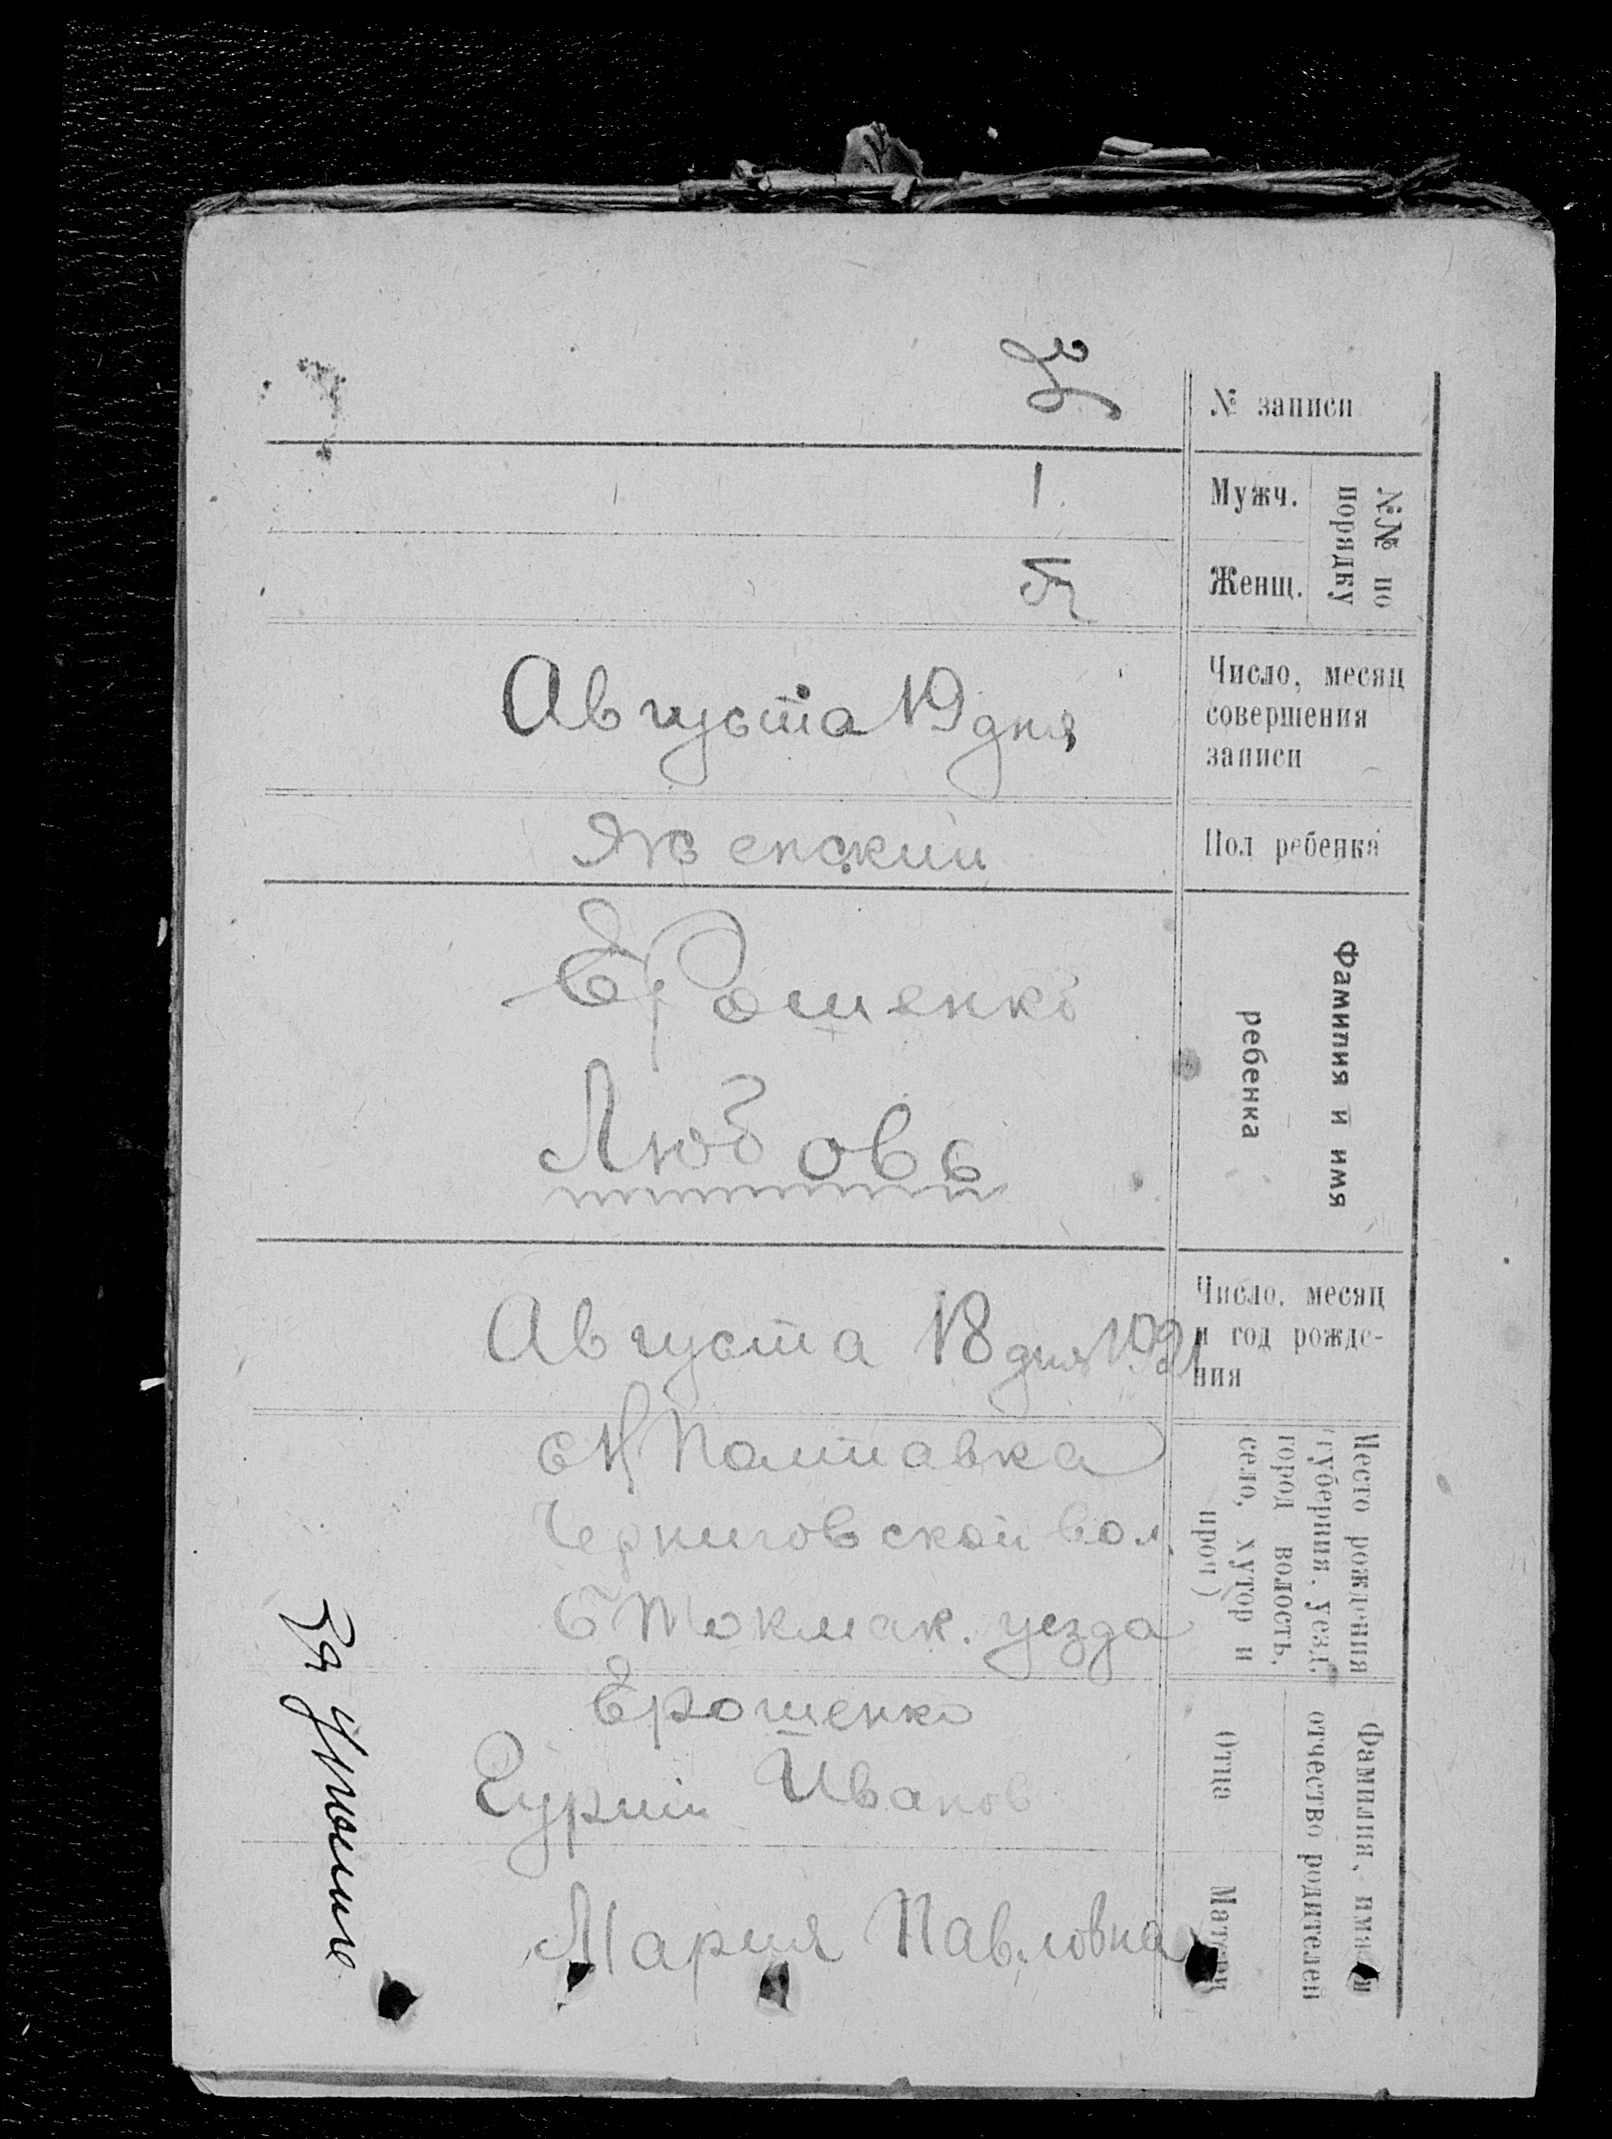 № записи
№№ по порядку
Мужч.
1.
Женщ.
5
Число, месяц
совершения
записи
Августа 19 дня
Пол ребенка
Женский
Фамилия и имя
ребенка
Ерошенко
Любовь
Число, месяц
и год рожде-
ния
Августа 18 дня 1921
Место рождения
(губерния, уезд,
город волость,
село, хутор и
проч)
с Н Полтавка
Черниговской вол.
Б Токмак. уезда
Фамилия, имя и
отчество родителей
Отца
Ерошенко
Гурий Иванов
Матери
Мария Павловна